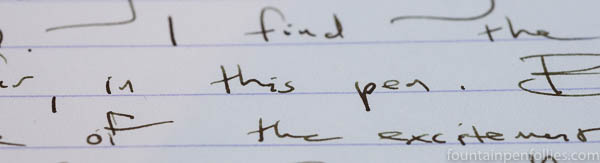 I find the
, in this pen.
of the excitement
fountainpenfollies.com